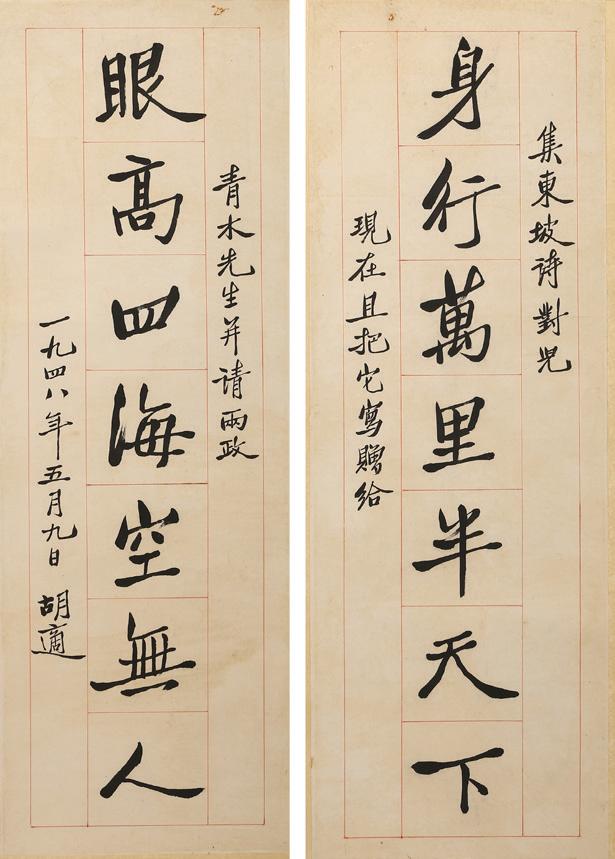 集東坡诗對兒
身行萬里半天下
現在且把它寫贈給
青木先生并请兩政
眼高四海空無人
一九四八年五月九日 胡適